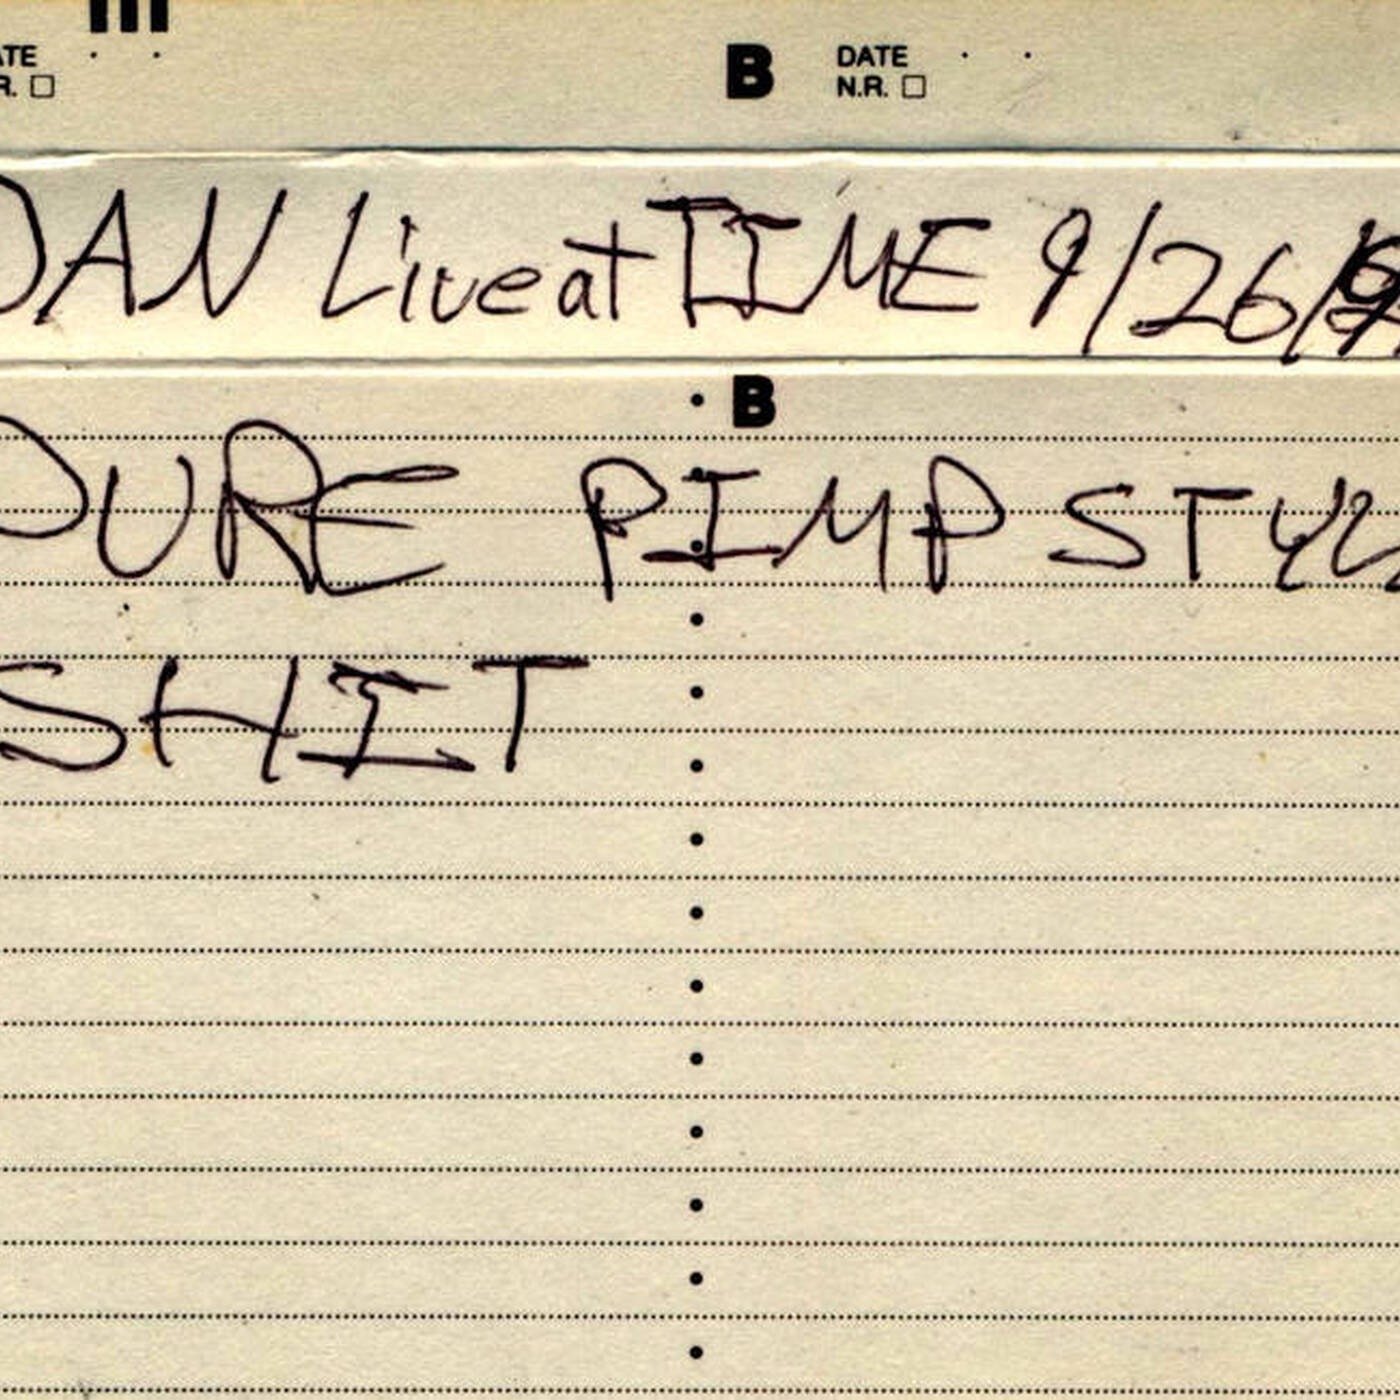 DATE B DATE
N.R. N.R.
DAN Live at TIME 9/26/
B
PURE PIMP STYLE
SHIT